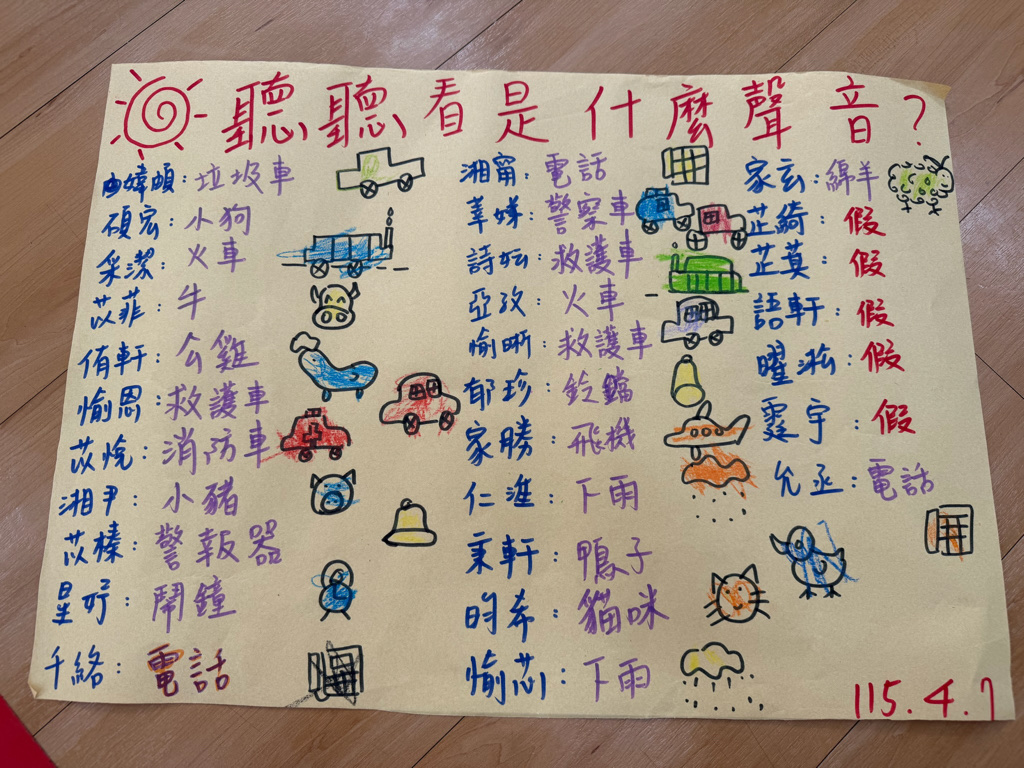 聽聽看是什麼聲音?
由婞頔:垃圾車
碩宏:小狗
采潔:火車
苡菲:牛
侑軒:公雞
愉恩:救護車
苡悅:消防車
湘尹:小豬
苡榛:警報器
星妤:鬧鐘
千絡:電話
湘甯:電話
莘娣:警察車
詩妘:救護車
亞孜:火車
愉晰:救護車
郁珍:鈴鐺
家勝:飛機
仁淮:下雨
秉軒:鴨子
昀希:貓咪
愉芯:下雨
家玄:綿羊
芷綺:假
芷萁:假
語軒:假
曜淞:假
霆宇:假
允丞:電話
115.4.7